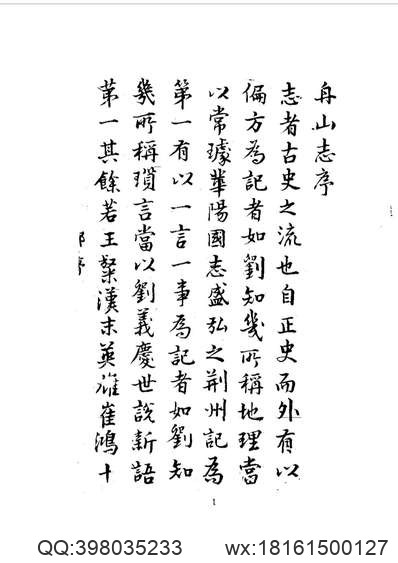 舟山志序
志者古史之流也自正史而外有以
偏方為記者如劉知幾所稱地理當
以常璩華陽國志盛弘之荆州記為
第一有以一言一事為記者如劉知
幾所稱瑣言當以劉義慶世說新語
第一其餘若王粲漢末英雄崔鴻十
1
QQ:398035233 wx:18161500127